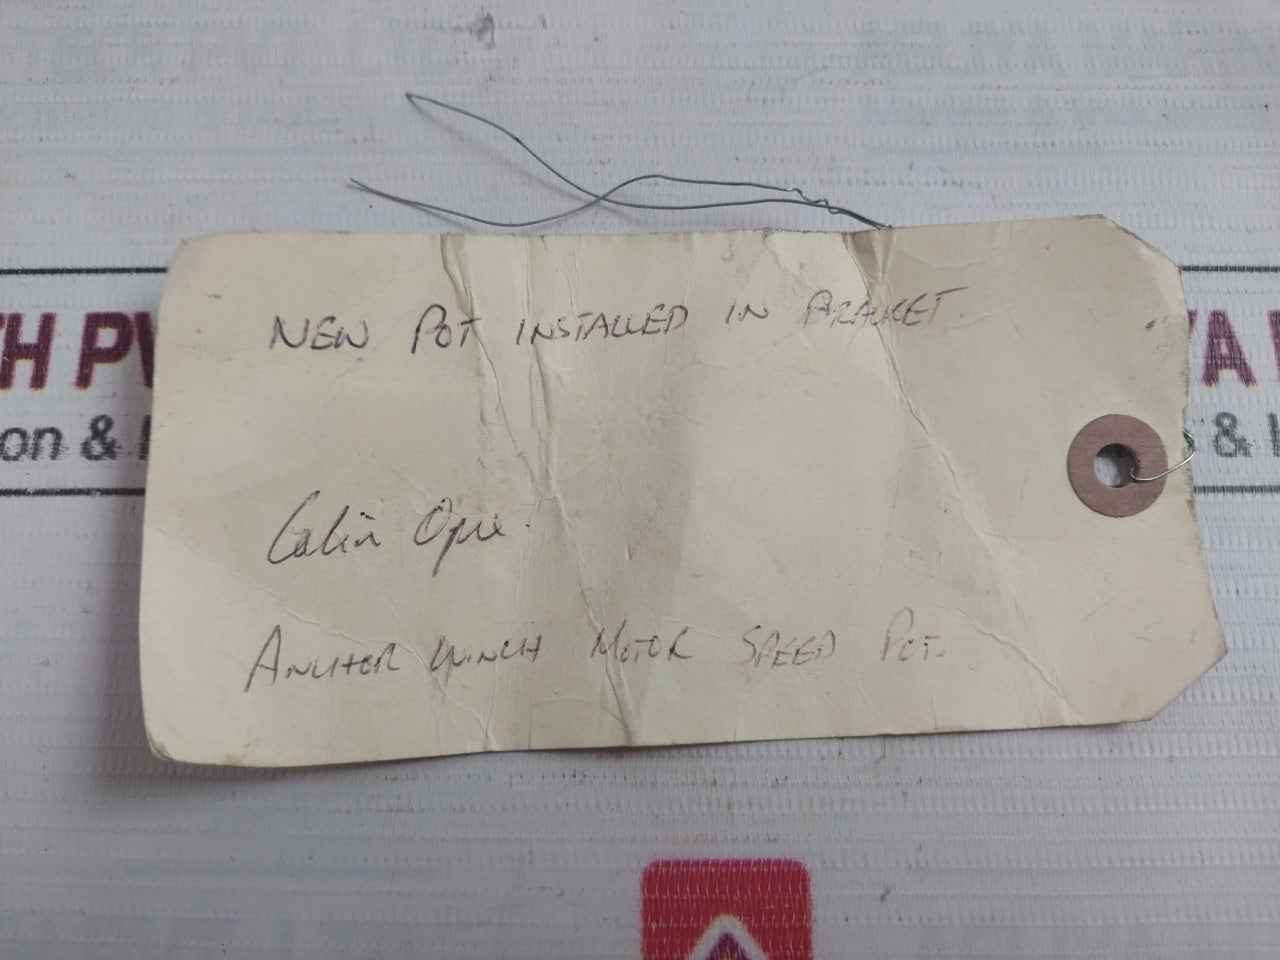 NEW POT INSTALLED IN BRACKET.
TH PV
YA
on &
& I
Colin Opie.
ANCHOR WINCH MOTOR SPEED POT.